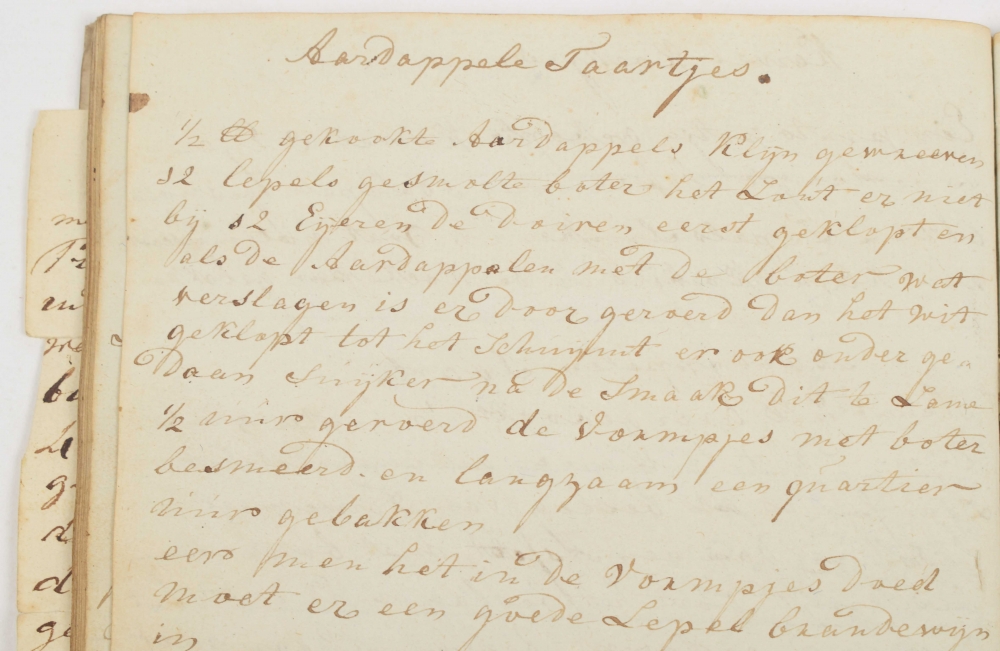 Aardappele Taartjes.
1/2 ℔ gekookte Aardappels Klijn gewreeven
12 lepels gesmolte boter het Zout er niet
bij 12 Eijeren de doiren eerst geklopt en
als de Aardappelen met de boter wat
verslagen is er door geroerd dan het wit
geklopt tot het Schuijmt er ook onder ge„
daan suijker na de Smaak dit te Zame
1/2 uur geroerd de Vormpjes met boter
besmeerd en langzaam een quartier
uur gebakken
eer men het in de Vormpjes doed
moet er een goede Lepel brandewijn
in